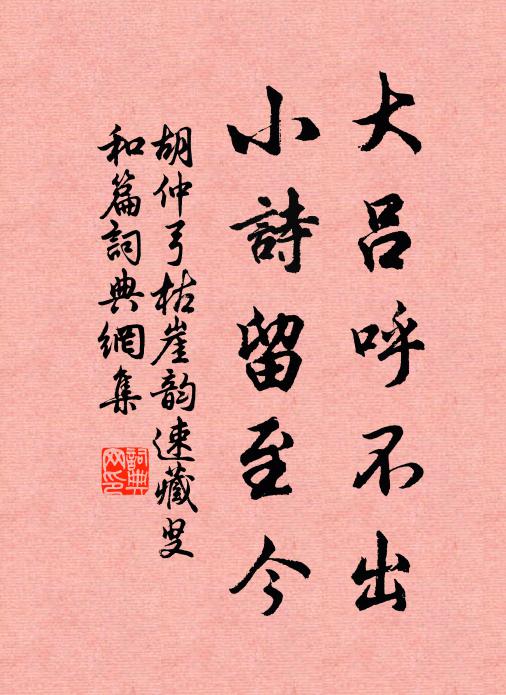 大呂呼不出
小詩留至今
胡仲弓枯崖韵速藏叟
和篇詞典網集
詞典
网印